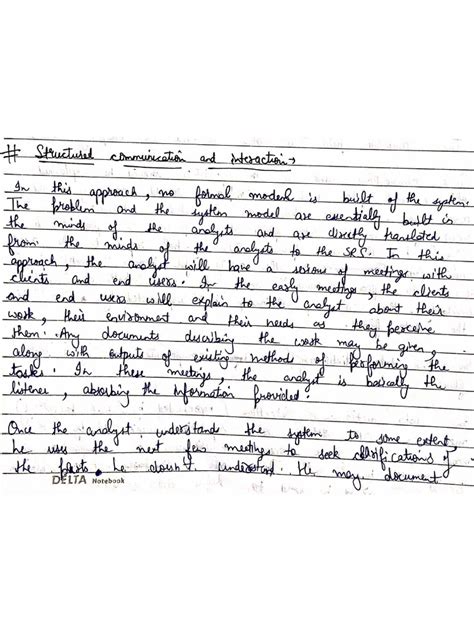 # Structured communication and interaction →
In this approach, no formal modenl is built of the system.
The problem and the system model are essentially built in
the minds of the analysts and are directly translated
from the minds of the analysts to the SRS. In this
approach, the analyst will have a serious of meetings with
clients and end users. In the early meetings, the clients
and end users will explain to the analyst about their
work, their environment and their needs as they perceive
them. Any documents describing the work may be given,
along with outputs of existing methods of performing the
tasks. In these meetings, the analyst is basically the
listener, absorbing the information provided.
Once the analyst understands the system to some extent,
he uses the next few meetings to seek clarifications of
the parts he doesn't understand. He may document
DELTA Notebook